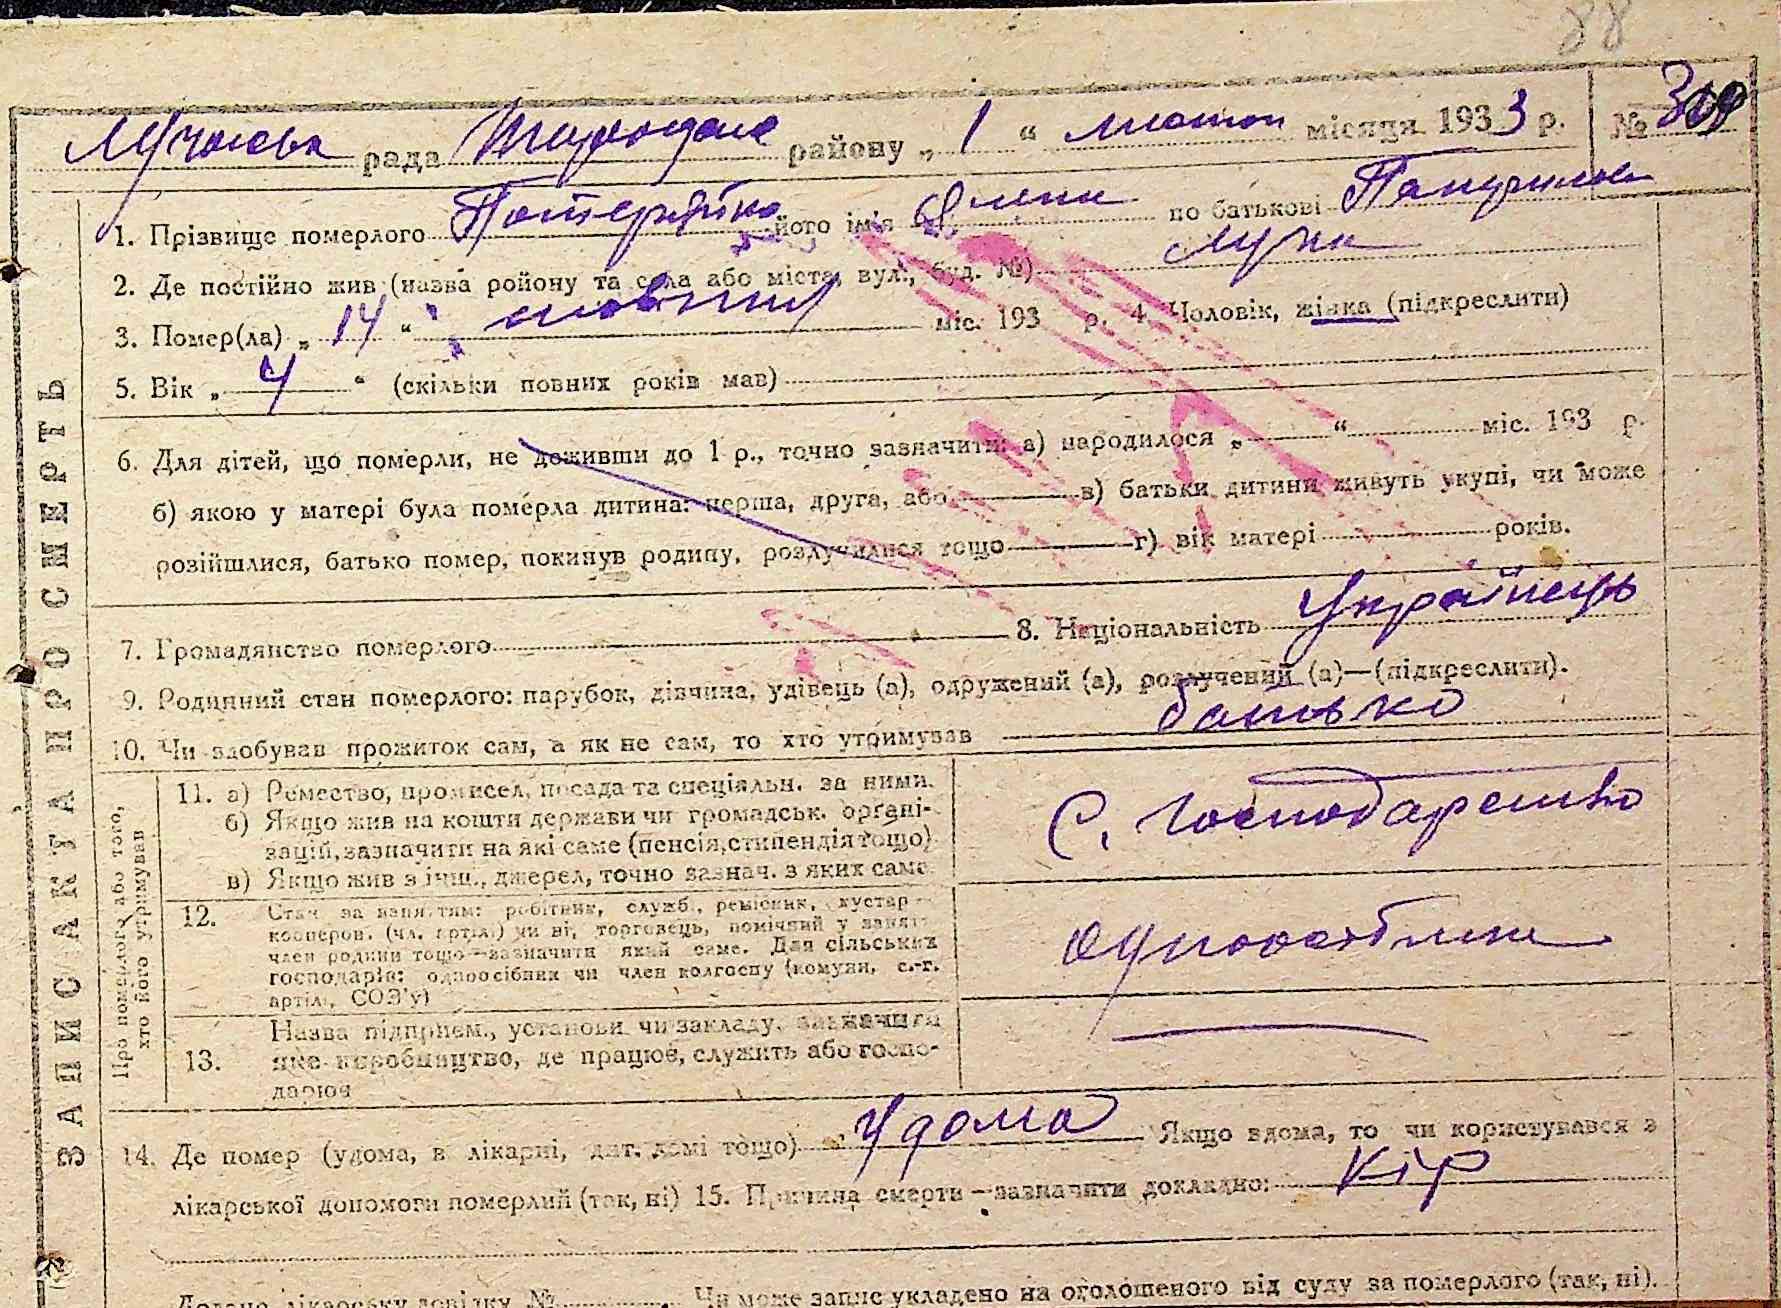 88
рада району „ 1 “ місяця 1933 р. №
1. Прізвище померлого його ім'я по батькові
2. Де постійно жив (назва ройону та села або міста, вул., буд. №) Лука
3. Помер(ла) „ 14 “ міс. 193 р. 4. Чоловік, жінка (підкреслити)
5. Вік „ 4 “ (скільки повних років мав)
6. Для дітей, що померли, не доживши до 1 р., точно зазначити: а) народилося „ “ міс. 193 р.
б) якою у матері була померла дитина: перша, друга, або в) батьки дитини живуть укупі, чи може
розійшлися, батько помер, покинув родину, розлучилися тощо г) вік матері років.
7. Громадянство померлого 8. Національність Українець
9. Родинний стан померлого: парубок, дівчина, удівець (а), одружений (а), розлучений (а)—(підкреслити).
10. Чи здобував прожиток сам, а як не сам, то хто утримував батько
11. а) Ремество, промисел, посада та спеціяльн. за ними.
б) Якщо жив на кошти держави чи громадськ. органі-
зацій, зазначити на які саме (пенсія, стипендія тощо)
в) Якщо жив з інш., джерел, точно зазнач. з яких саме
С. Господарство
12. Стан за заняттям: робітник, служб., ремісник, кустар
кооперов. (чл. артілі) чи ні, торговець, помічний у занят.
член родини тощо—зазначити який саме. Для сільських
господарів: одноосібник чи член колгоспу (комуни, с.-г.
артілі, СОЗ'у)
13. Назва підприєм., установи чи закладу, зазначити
яке виробництво, де працює, служить або госпо-
дарює
14. Де помер (удома, в лікарні, дит. домі тощо) Удома Якщо вдома, то чи користувався з
лікарської допомоги померлий (так, ні) 15. Причина смерти—зазначити докладно: Кір
Додано лікарську довідку № Чи може запис укладено на оголошеного від суду за померлого (так, ні).
ЗАПИС АКТА ПРО СМЕРТЬ
Про померлого або того,
хто його утримував